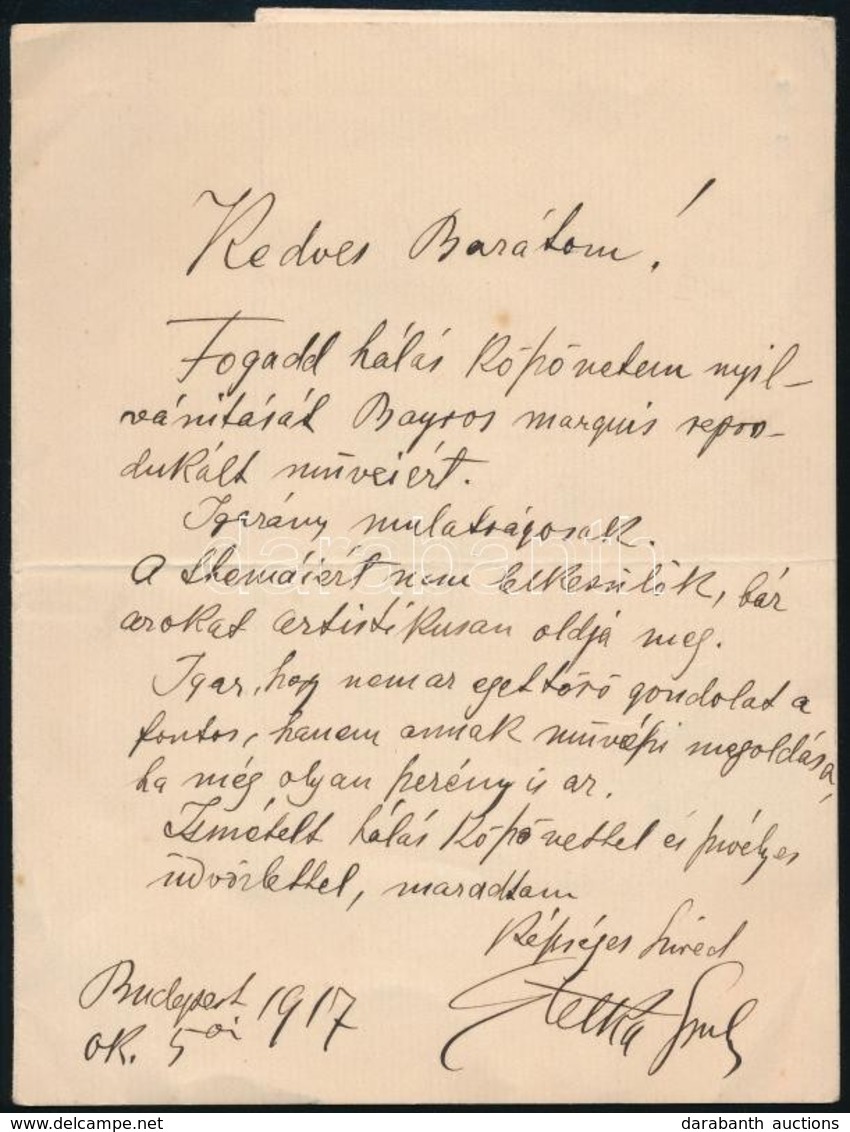 Kedves Barátom!
Fogadd hálás köszönetem nyil-
vánitását Bayros marquis repro-
dukált müveiért.
Igazán mulatságosak.
A themáiért nem lelkesülök, bár
azokat artistikusan oldja meg.
Igaz, hogy nem az egettörö gondolat a
fontos, hanem annak müvészi megoldása,
ha még olyan szerény is az.
Ismételt hálás köszönettel és szivélyes
üdvözlettel, maradtam
Készséges hived
Telká
Budapest 1917
ok. 5 öi
darabanth
www.delcampe.net
darabanth auctions